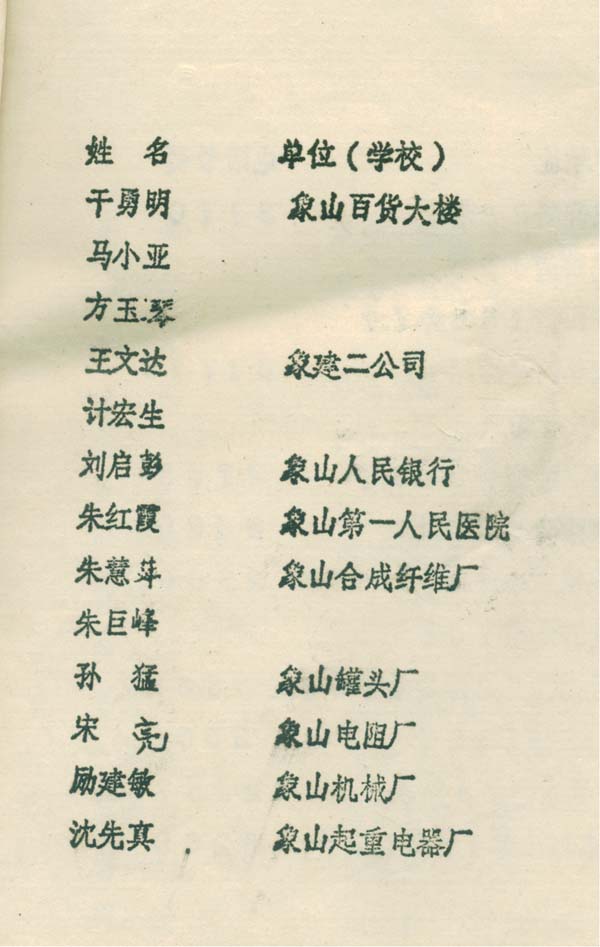 姓 名 单位(学校)
干勇明 象山百货大楼
马小亚
方玉琴
王文达 象建二公司
计宏生
刘启彭 象山人民银行
朱红霞 象山第一人民医院
朱慧萍 象山合成纤维厂
朱巨峰
孙 猛 象山罐头厂
宋 亮 象山电阻厂
励建敏 象山机械厂
沈先真 象山起重电器厂